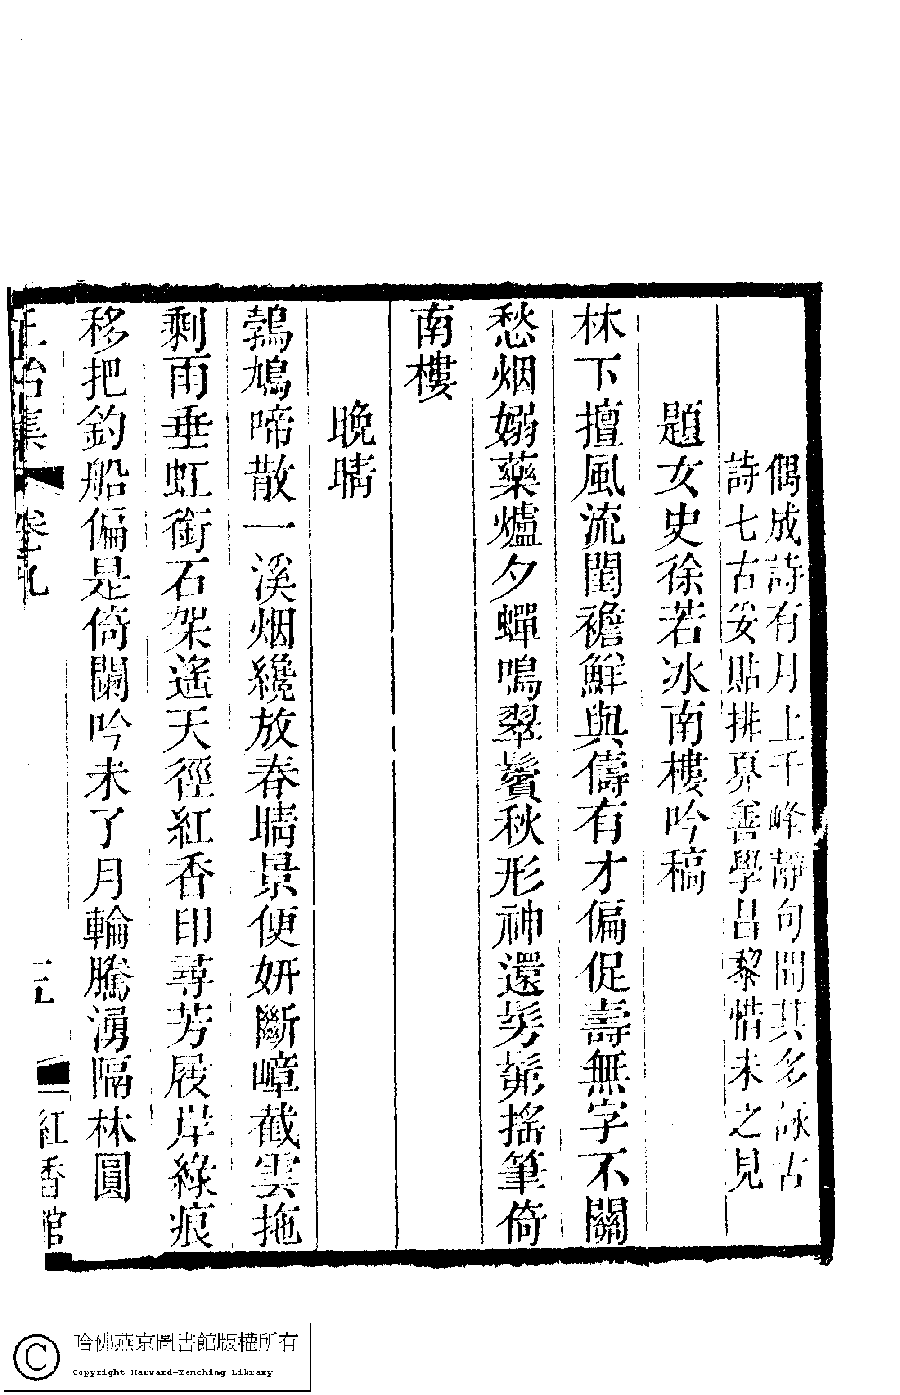 偶成詩有月上千峰靜句聞其多詠古
詩七古妥貼排奡善學昌黎惜未之見
題女史徐若冰南樓吟稿
林下擅風流閨襜鮮與儔有才偏促壽無字不關
愁烟嫋藥爐夕蟬鳴翠鬢秋形神還髣髴搖筆倚
南樓
晚晴
鵓鳩啼散一溪烟纔放春晴景便妍斷嶂截雲拖
剩雨垂虹銜石架遙天徑紅香印尋芳屐岸綠痕
移把釣船偏是倚闌吟未了月輪騰湧隔林圓
正始集 卷九 三 紅香館
哈佛燕京圖書館版權所有
Copyright Harvard-Yenching Library